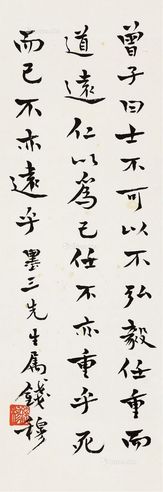 曾子曰士不可以不弘毅任重而
道遠仁以為己任不亦重乎死
而已不亦遠乎 墨三先生屬 錢穆